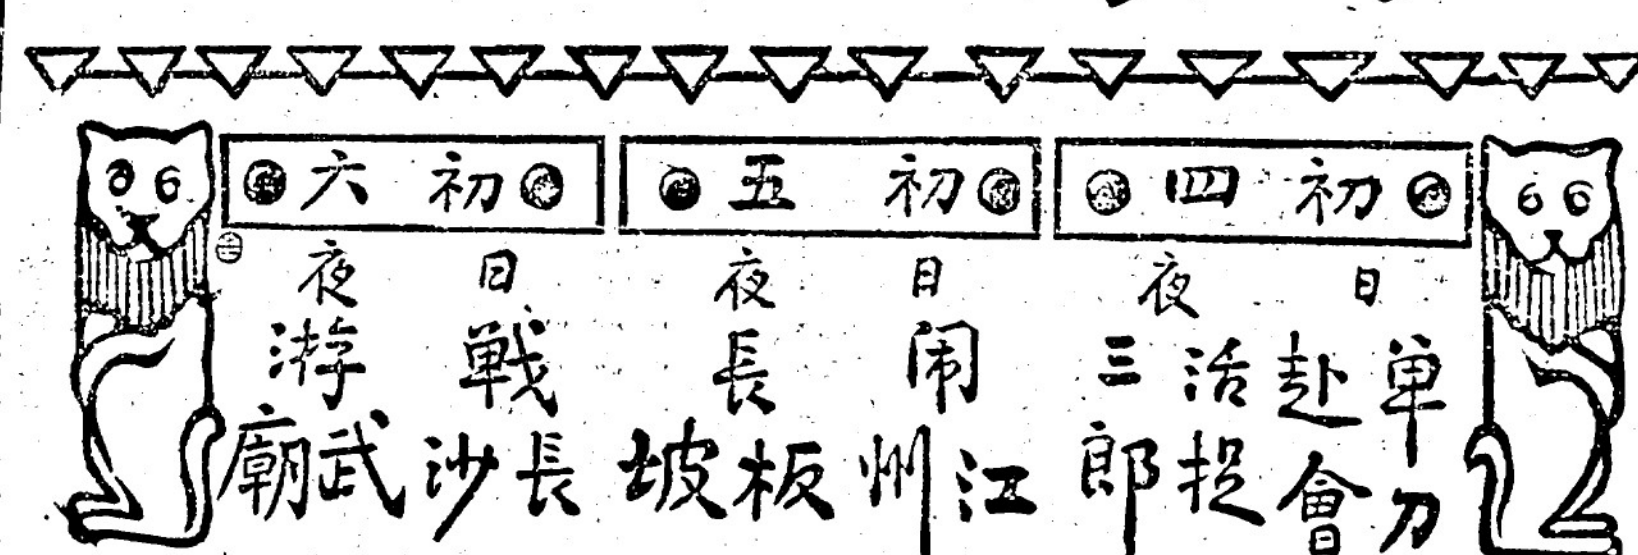 初四
日 单刀赴會
夜 活捉三郎
初五
日 闹江州
夜 長板坡
初六
日 戦長沙
夜 游武廟